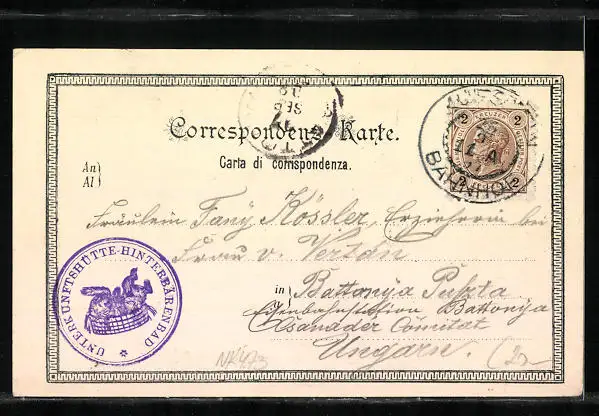 2 KREUZER 2
KUFSTEIN
BAHNHOF
SEP
Correspondenz-Karte.
Carta di corrispondenza.
An
Al
Fräulein Fany Kössler, Erzieherin bei
Frau v. Vertán
in
Battonya Puszta
Eisenbahnstation Battonya
Csanader Comitat
Ungarn.
UNTERKUNFTSHÜTTE-HINTERBÄRENBAD
NK 473
2